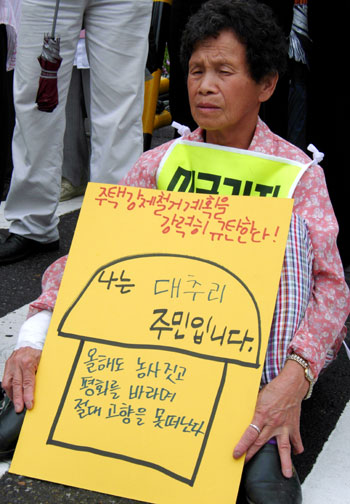 주택강제철거계획을
강력히 규탄한다!
나는 대추리
주민입니다.
올해도 농사짓고
평화를 바라며
절대 고향을 못떠난다